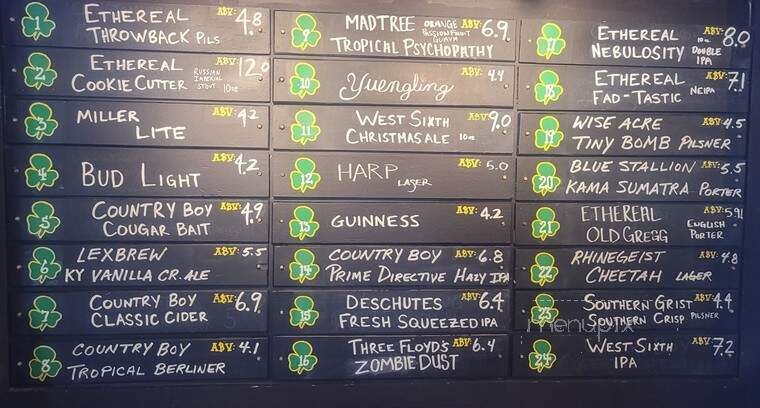 1 ETHEREAL ABV: 4.8
THROWBACK PILS
2 ETHEREAL ABV: 12.0
COOKIE CUTTER RUSSIAN IMPERIAL STOUT 10oz
3 MILLER ABV: 4.2
LITE
4 BUD LIGHT ABV: 4.2
5 COUNTRY BOY ABV: 4.9
COUGAR BAIT
6 LEXBREW ABV: 5.5
KY VANILLA CR. ALE
7 COUNTRY BOY ABV: 6.9
CLASSIC CIDER
8 COUNTRY BOY ABV: 4.1
TROPICAL BERLINER
9 MADTREE ORANGE PASSIONFRUIT GUAVA ABV: 6.9
TROPICAL PSYCHOPATHY
10 Yuengling ABV: 4.4
11 WEST SIXTH ABV: 9.0
CHRISTMAS ALE 10oz
12 HARP LAGER ABV: 5.0
13 GUINNESS ABV: 4.2
14 COUNTRY BOY ABV: 6.8
PRIME DIRECTIVE HAZY IPA
15 DESCHUTES ABV: 6.4
FRESH SQUEEZED IPA
16 THREE FLOYD'S ABV: 6.4
ZOMBIE DUST
17 ETHEREAL 10oz ABV: 8.0
NEBULOSITY DOUBLE IPA
18 ETHEREAL ABV: 7.1
FAD-TASTIC NEIPA
19 WISE ACRE ABV: 4.5
TINY BOMB PILSNER
20 BLUE STALLION ABV: 5.5
KAMA SUMATRA PORTER
21 ETHEREAL ABV: 5.91
OLD GREGG ENGLISH PORTER
22 RHINEGEIST ABV: 4.8
CHEETAH LAGER
23 SOUTHERN GRIST ABV: 4.4
SOUTHERN CRISP PILSNER
24 WEST SIXTH ABV: 7.2
IPA
menupix